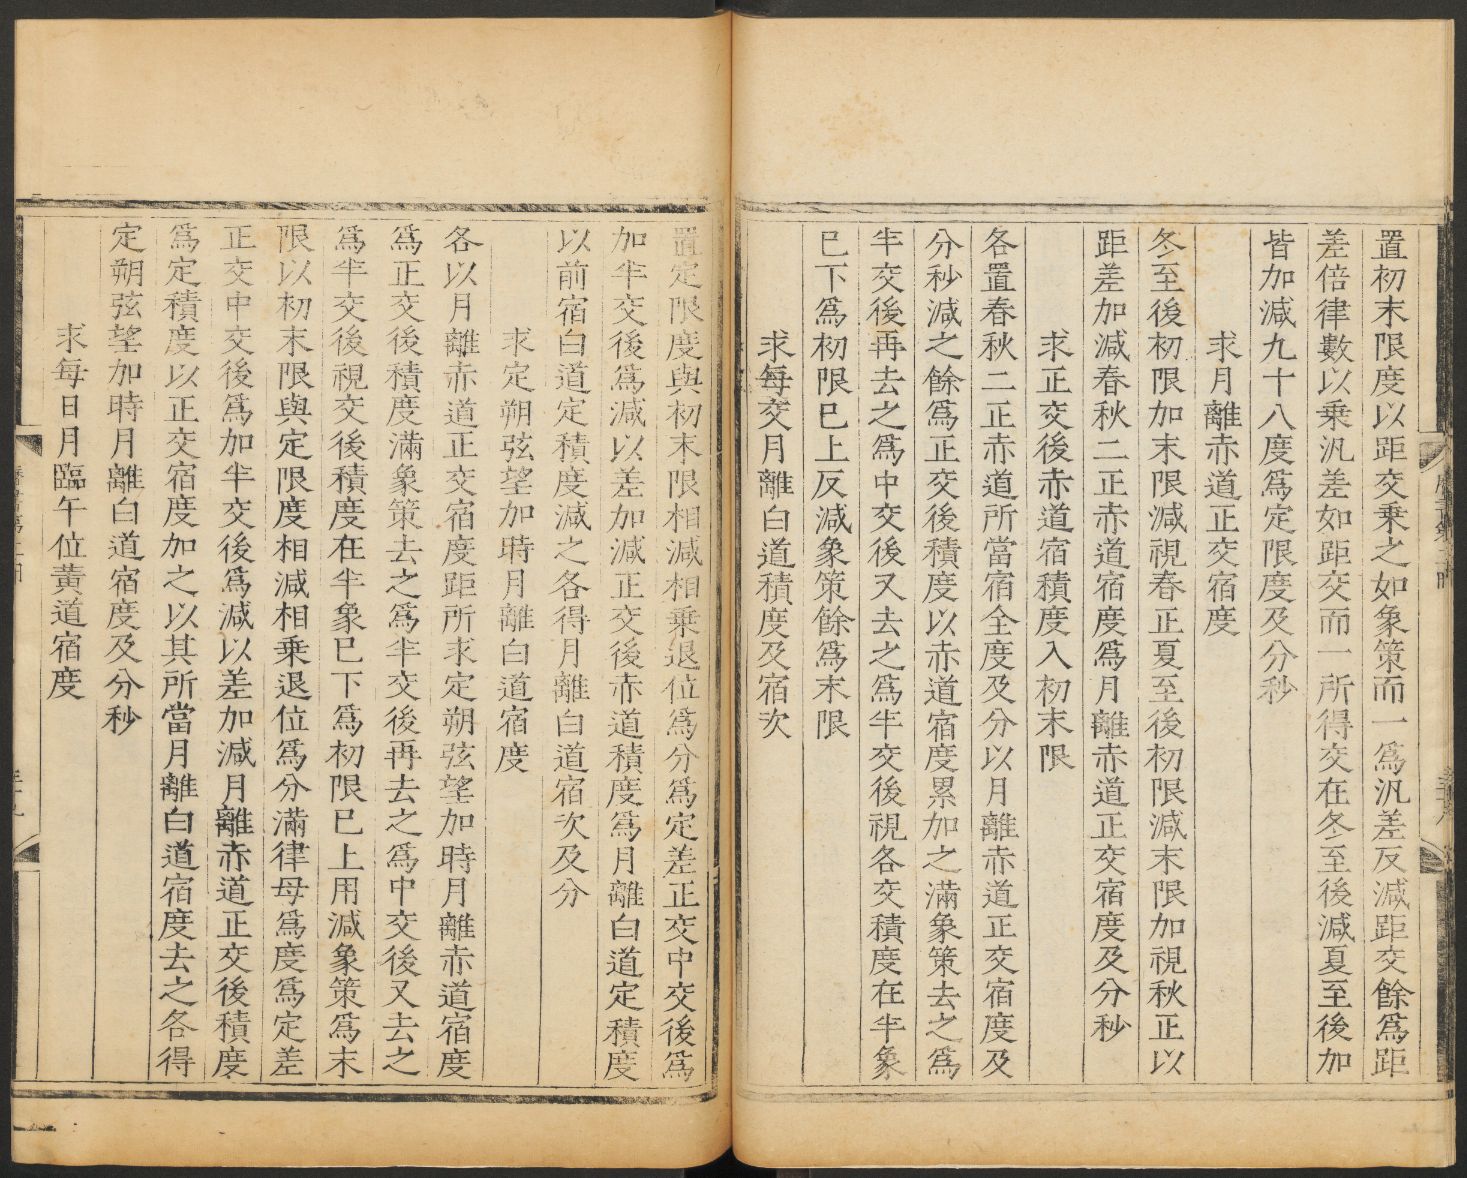 置初末限度以距交乗之如象策而一爲汎差反減距交餘爲距
差倍律數以乗汎差如距交而一所得交在冬至後減夏至後加
皆加減九十八度爲定限度及分秒
求月離赤道正交宿度
冬至後初限加末限減視春正夏至後初限減末限加視秋正以
距差加減春秋二正赤道宿度爲月離赤道正交宿度及分秒
求正交後赤道宿積度入初末限
各置春秋二正赤道所當宿全度及分以月離赤道正交宿度及
分秒減之餘爲正交後積度以赤道宿度累加之滿象策去之爲
半交後再去之爲中交後又去之爲半交後視各交積度在半象
巳下爲初限巳上反減象策餘爲末限
求每交月離白道積度及宿次
置定限度與初末限相減相乗退位爲分爲定差正交中交後爲
加半交後爲減以差加減正交後赤道積度爲月離白道定積度
以前宿白道定積度減之各得月離白道宿次及分
求定朔弦望加時月離白道宿度
各以月離赤道正交宿度距所求定朔弦望加時月離赤道宿度
爲正交後積度滿象策去之爲半交後再去之爲中交後又去之
爲半交後視交後積度在半象巳下爲初限巳上用減象策爲末
限以初末限與定限度相減相乗退位爲分滿律母爲度爲定差
正交中交後爲加半交後爲減以差加減月離赤道正交後積度
爲定積度以正交宿度加之以其所當月離白道宿度去之各得
定朔弦望加時月離白道宿度及分秒
求每日月臨午位黄道宿度